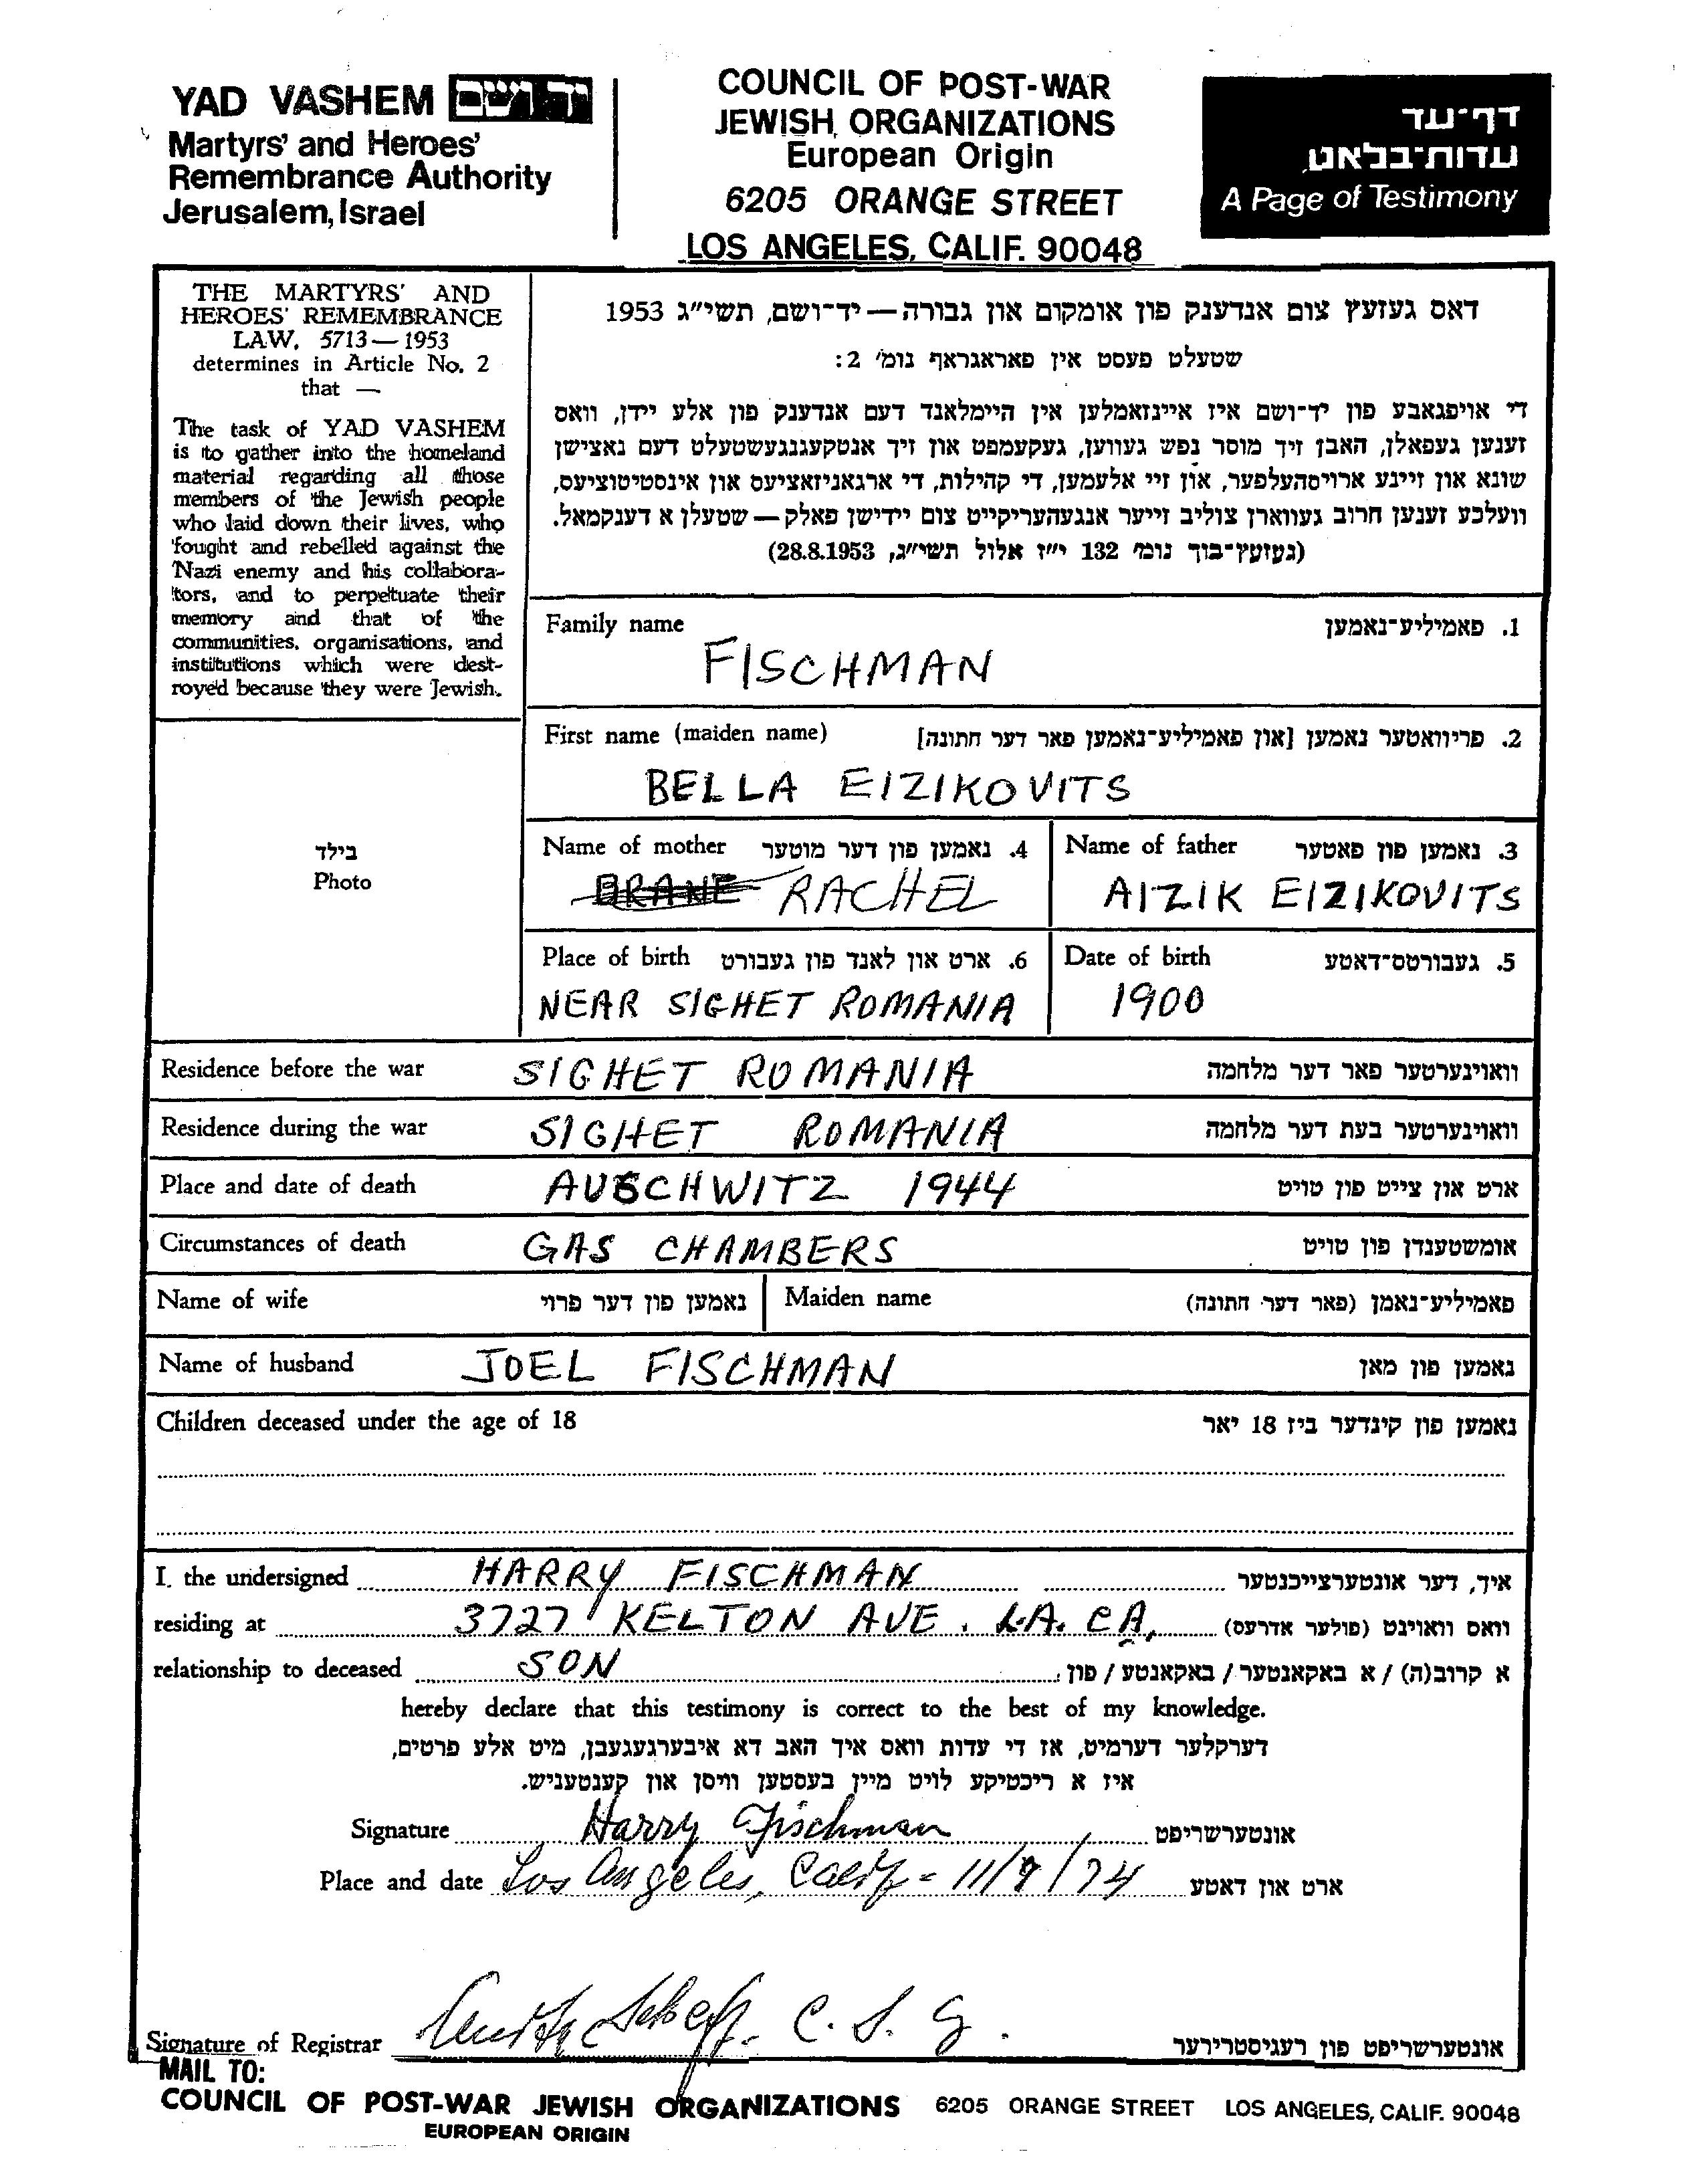 YAD VASHEM יד ושם
Martyrs' and Heroes'
Remembrance Authority
Jerusalem, Israel
COUNCIL OF POST-WAR
JEWISH ORGANIZATIONS
European Origin
6205 ORANGE STREET
LOS ANGELES, CALIF. 90048
דף־עד
עדות־בלאט
A Page of Testimony
THE MARTYRS' AND
HEROES' REMEMBRANCE
LAW, 5713—1953
determines in Article No. 2
that —
The task of YAD VASHEM
is to gather into the homeland
material regarding all those
members of the Jewish people
who laid down their lives, who
fought and rebelled against the
Nazi enemy and his collabora-
tors, and to perpetuate their
memory and that of the
communities, organisations, and
institutions which were dest-
royed because they were Jewish.
דאס געזעץ צום אנדענק פון אומקום און גבורה — יד־ושם, תשי״ג 1953
שטעלט פעסט אין פאראגראף נומ׳ 2:
די אויפגאבע פון יד־ושם איז איינזאמלען אין היימלאנד דעם אנדענק פון אלע יידן, וואס
זענען געפאלן, האבן זיך מוסר נפש געווען, געקעמפט און זיך אנטקעגנגעשטעלט דעם נאצישן
שונא און זיינע ארויסהעלפער, און זיי אלעמען, די קהילות, די ארגאניזאציעס און אינסטיטוציעס,
וועלכע זענען חרוב געווארן צוליב זייער אנגעהעריקייט צום יידישן פאלק — שטעלן א דענקמאל.
(געזעץ־בוך נומ׳ 132 י״ז אלול תשי״ג, 28.8.1953)
Family name 1. פאמיליע־נאמען
FISCHMAN
First name (maiden name) 2. פריוואטער נאמען [און פאמיליע־נאמען פאר דער חתונה]
BELLA EIZIKOVITS
בילד
Photo
Name of mother 4. נאמען פון דער מוטער
BRANE RACHEL
Name of father 3. נאמען פון פאטער
AIZIK EIZIKOVITS
Place of birth 6. ארט און לאנד פון געבורט
NEAR SIGHET ROMANIA
Date of birth 5. געבורטס־דאטע
1900
Residence before the war SIGHET ROMANIA וואוינערטער פאר דער מלחמה
Residence during the war SIGHET ROMANIA וואוינערטער בעת דער מלחמה
Place and date of death AUSCHWITZ 1944 ארט און צייט פון טויט
Circumstances of death GAS CHAMBERS אומשטענדן פון טויט
Name of wife נאמען פון דער פרוי Maiden name פאמיליע־נאמן (פאר דער חתונה)
Name of husband JOEL FISCHMAN נאמען פון מאן
Children deceased under the age of 18 נאמען פון קינדער ביז 18 יאר
I, the undersigned HARRY FISCHMAN איך, דער אונטערצייכנטער
residing at 3727 KELTON AVE. L.A. CA, וואס וואוינט (פולער אדרעס)
relationship to deceased SON א קרוב(ה) / א באקאנטער / באקאנטע / פון:
hereby declare that this testimony is correct to the best of my knowledge.
דערקלער דערמיט, אז די עדות וואס איך האב דא איבערגעגעבן, מיט אלע פרטים,
איז א ריכטיקע לויט מיין בעסטען וויסן און קענטעניש.
Signature Harry Fischman אונטערשריפט
Place and date Los Angeles, Calif - 11/9/74 ארט און דאטע
Signature of Registrar C. S. G. אונטערשריפט פון רעגיסטרירער
MAIL TO:
COUNCIL OF POST-WAR JEWISH ORGANIZATIONS 6205 ORANGE STREET LOS ANGELES, CALIF. 90048
EUROPEAN ORIGIN